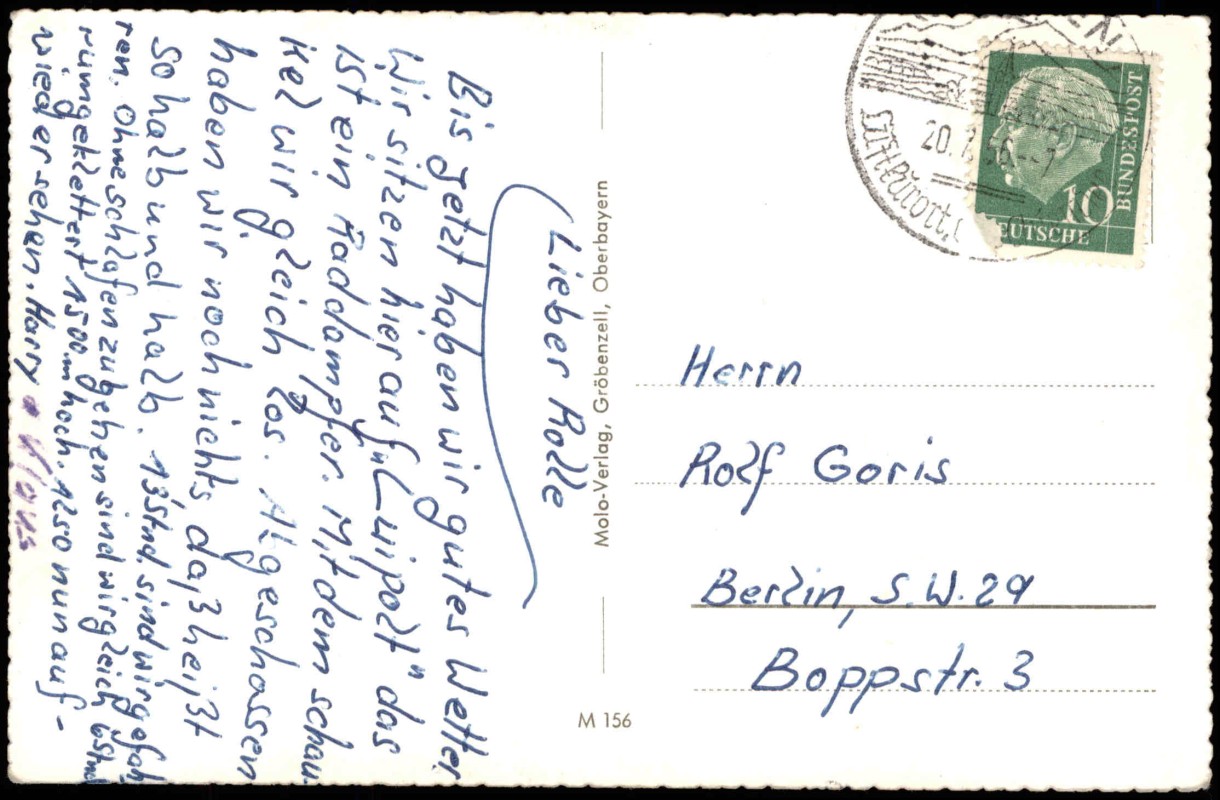 Lieber Rolle
Bis jetzt haben wir gutes Wetter
Wir sitzen hier auf „Luipolt" das
ist ein Raddampfer. Mit dem schau-
kel wir gleich los. Abgeschossen
haben wir noch nichts, daß heißt
so halb und halb. 13 Stnd. sind wir gefah
ren. Ohne schlafen zu gehen sind wir gleich 6 Stnd
rumgeklettert 1500 m hoch. Also nun auf-
wiedersehen. Harry u Klaus
Molo-Verlag, Gröbenzell, Oberbayern
M 156
20.
56
Luftkurort
10
BUNDESPOST
DEUTSCHE
Herrn
Rolf Goris
Berlin, S.W. 29
Boppstr. 3